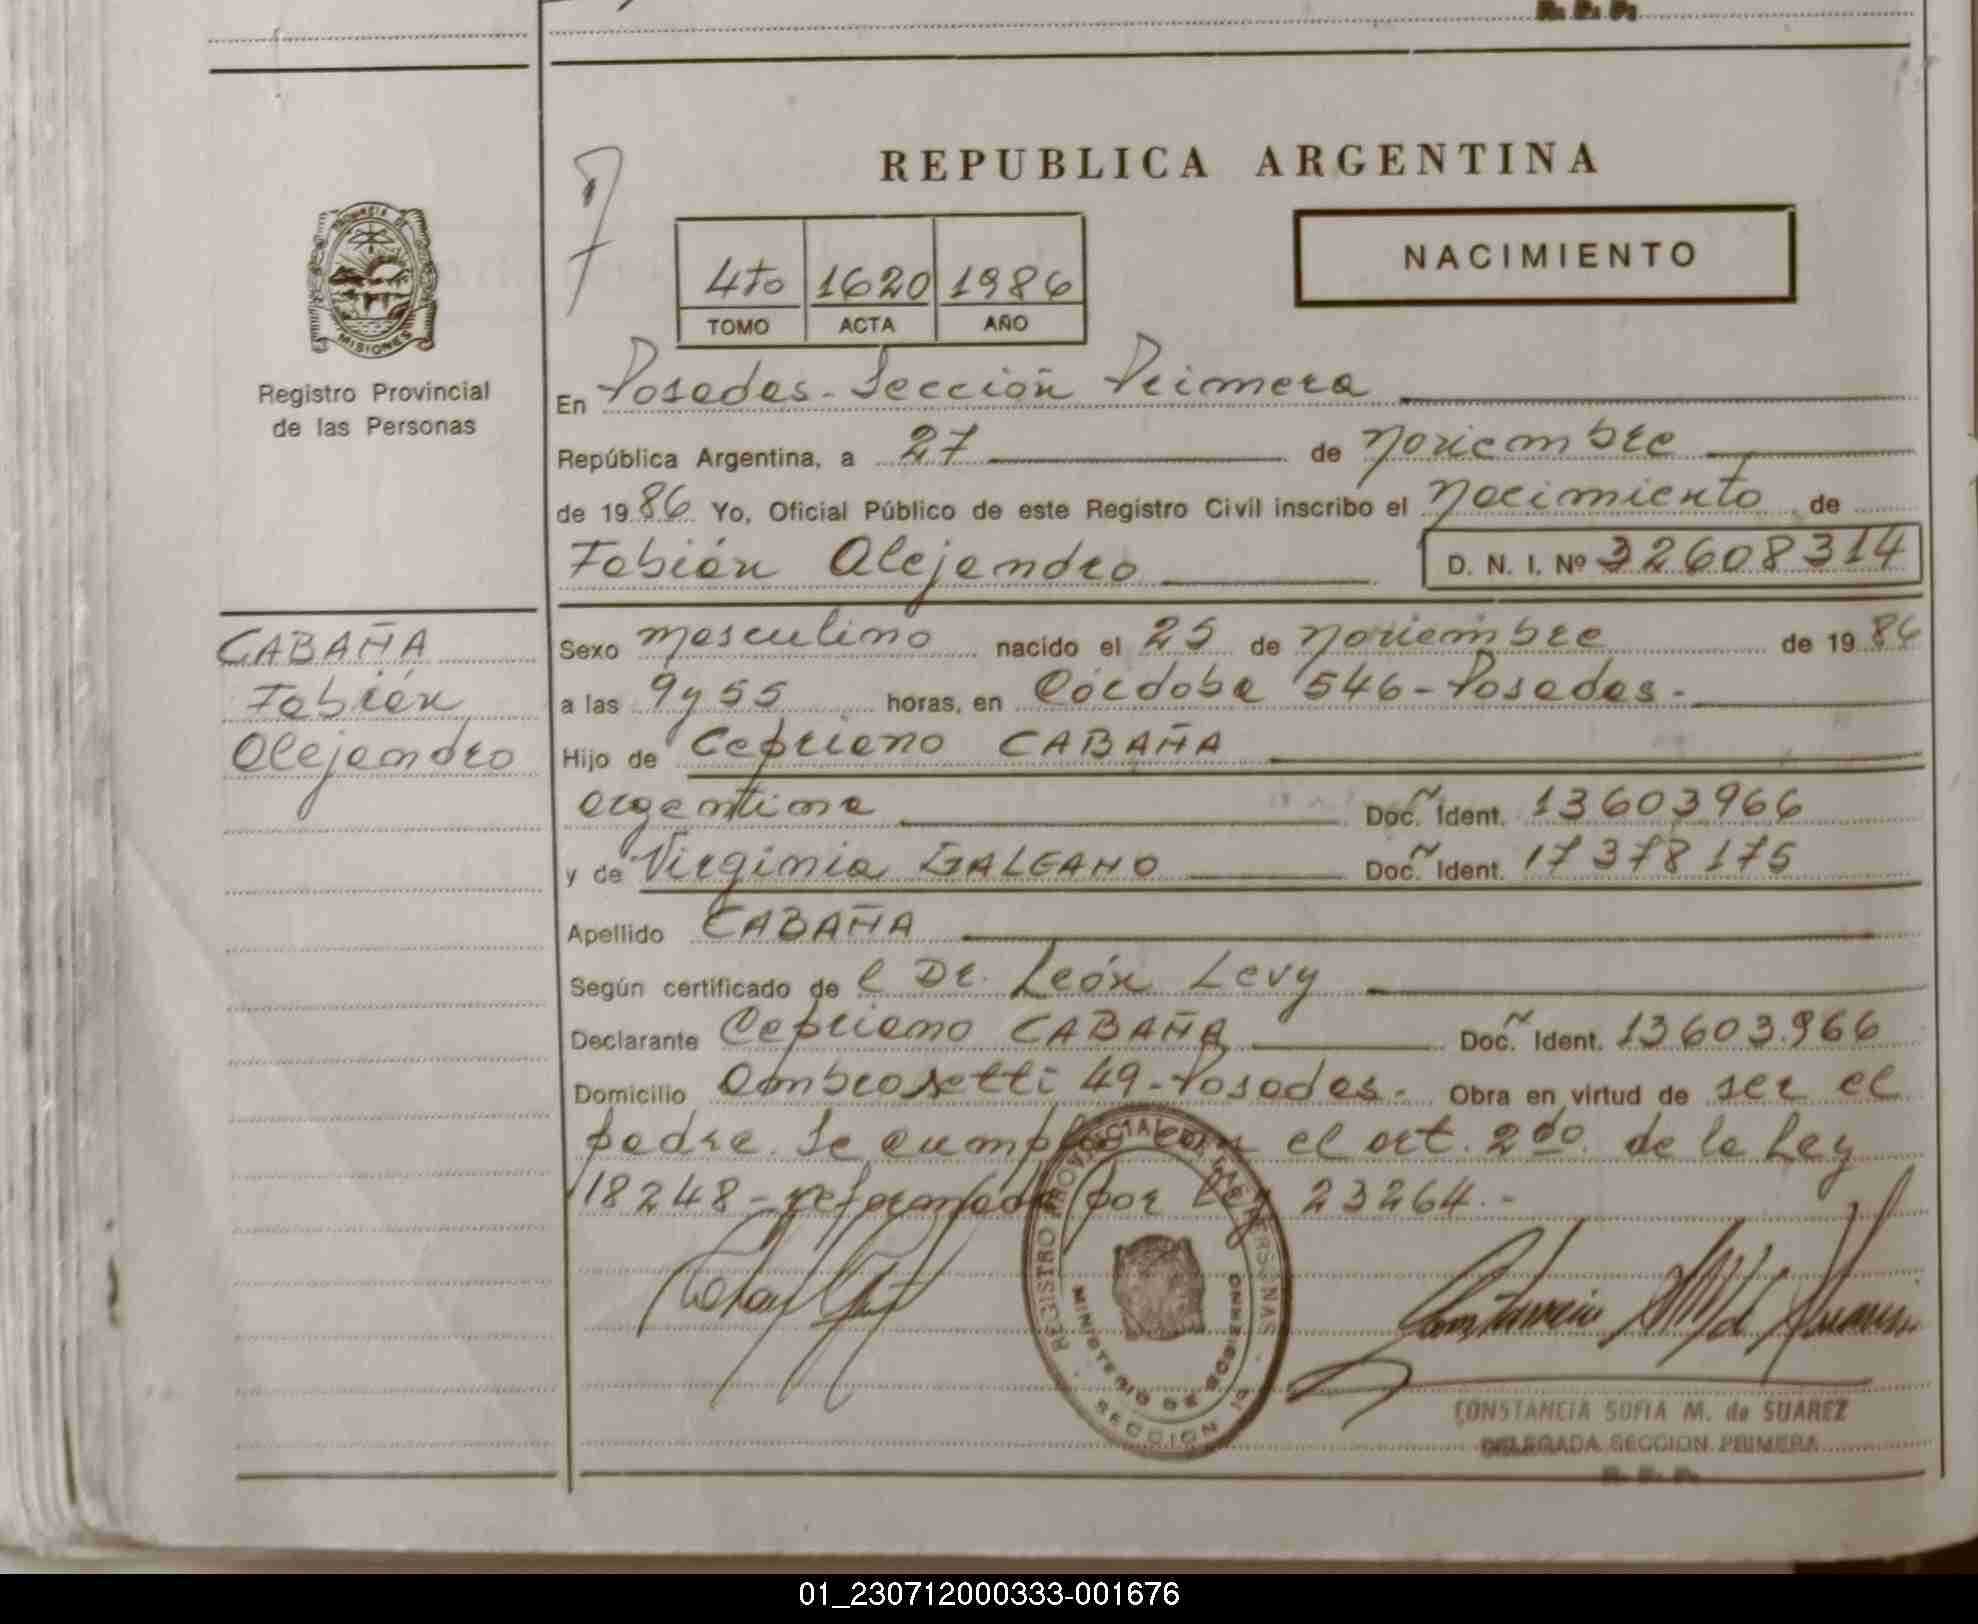 R. P. P.
REPUBLICA ARGENTINA
NACIMIENTO
4to 1620 1986
TOMO ACTA AÑO
PROVINCIA DE
MISIONES
Registro Provincial
de las Personas
En Posadas - Sección Primera
República Argentina, a 27 de noviembre
de 1986 Yo, Oficial Público de este Registro Civil inscribo el nacimiento de
Fabián Alejandro D. N. I. Nº 32608314
CABAÑA
Fabián
Alejandro
Sexo masculino nacido el 25 de noviembre de 1986
a las 9 y 55 horas, en Córdoba 546 - Posadas.-
Hijo de Cepriano CABAÑA
argentina Doc. Ident. 13603966
y de Virginia GALEANO Doc. Ident. 17378175
Apellido CABAÑA
Según certificado de l Dr. León Levy
Declarante Cepriano CABAÑA Doc. Ident. 13603.966
Domicilio Ambrosetti 49 - Posadas.- Obra en virtud de ser el
padre. Se cumple con el art. 2do. de la Ley
18248 - reformada por Ley 23264.-
REGISTRO PROVINCIAL DE LAS PERSONAS
MINISTERIO DE GOBIERNO
SECCION 1a
CONSTANCIA SOFIA M. de SUAREZ
DELEGADA SECCION PRIMERA
R. P. P.
01_230712000333-001676